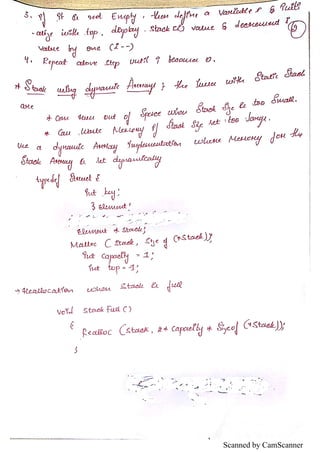 3. If it is not Empty, then define a variable i & initi
-alize with top, display stack [i] value & decrement i
value by one (i--)
4. Repeat above step until i becomes 0.
* Stack using dynamic Array : the issues with Static Stack
are
* Can run out of Space when Stack Size is too Small.
* Can waste Memory if Stack Size set too large.
Use a dynamic Array Implementation where Memory for the
Stack Array is set dynamically
typedef Struct {
int key;
} Element;
Element * stack;
Malloc ( stack, Size of (*stack));
int capacity = 1;
int top = -1;
→ Reallocation when stack is full
void stack Full ()
{
Realloc (stack, 2 * capacity * Sizeof (*stack));
}
Scanned by CamScanner